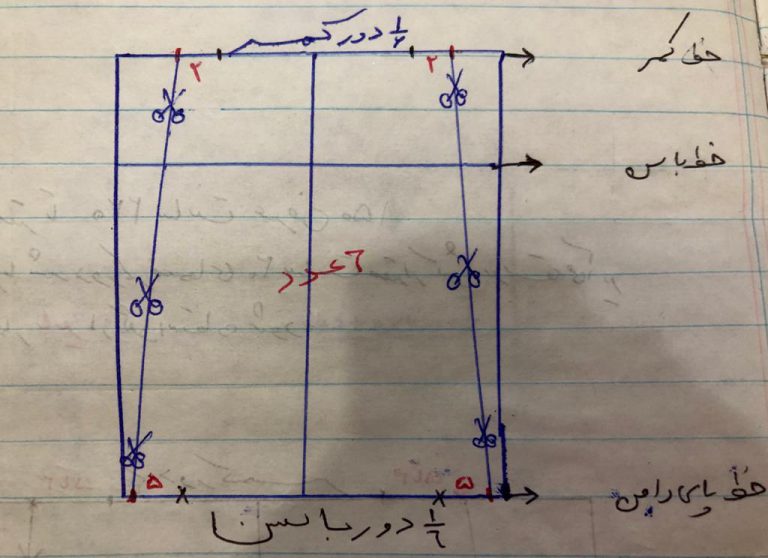 ۱/۶ دور کمر
خط کمر
۲
۲
خط باسن
۶ عدد
۵
۵
خط پای دامن
۱/۶ دور باسن